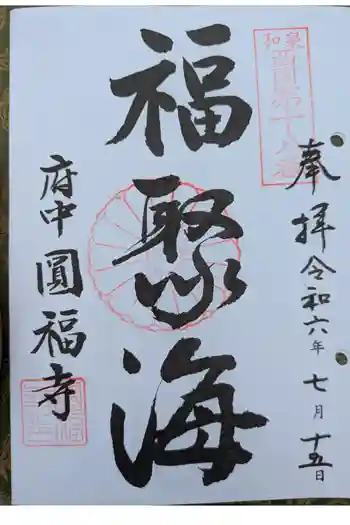 奉拝
令和六年七月十五日
和泉
西国第十八番
福聚海
府中圓福寺